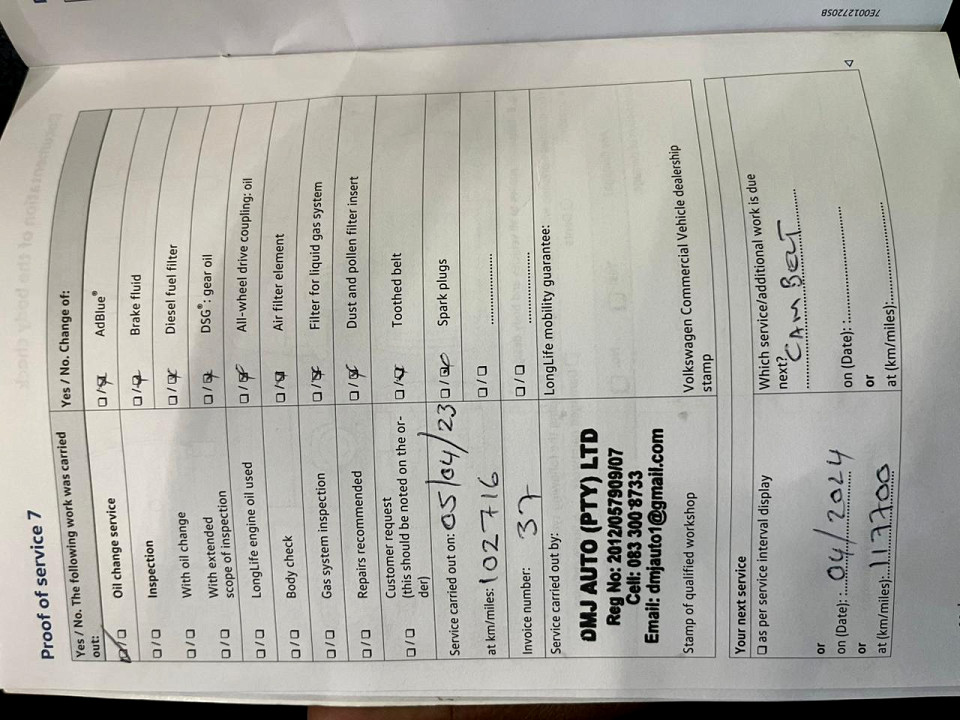 Proof of service 7
Yes / No. The following work was carried out:
☑ / ☐ Oil change service
☐ / ☐ Inspection
☐ / ☐ With oil change
☐ / ☐ With extended scope of inspection
☐ / ☐ LongLife engine oil used
☐ / ☐ Body check
☐ / ☐ Gas system inspection
☐ / ☐ Repairs recommended
☐ / ☐ Customer request (this should be noted on the or-
der)
Yes / No. Change of:
☐ / ☑ AdBlue®
☐ / ☑ Brake fluid
☐ / ☑ Diesel fuel filter
☐ / ☑ DSG®: gear oil
☐ / ☑ All-wheel drive coupling: oil
☐ / ☑ Air filter element
☐ / ☑ Filter for liquid gas system
☐ / ☑ Dust and pollen filter insert
☐ / ☑ Toothed belt
☐ / ☑ Spark plugs
☐ / ☐ ....................
☐ / ☐ ....................
Service carried out on: 05/04/23
at km/miles: 102716
Invoice number: 37
Service carried out by:
DMJ AUTO (PTY) LTD
Reg No: 2012/057909/07
Cell: 083 300 8733
Email: dmjauto1@gmail.com
Stamp of qualified workshop
LongLife mobility guarantee:
Volkswagen Commercial Vehicle dealership
stamp
Your next service
☐ as per service interval display
or
on (Date): 04/2024
or
at (km/miles): 117700
Which service/additional work is due
next?
CAMBELT
on (Date): ....................
or
at (km/miles): ....................
7E0012720SB